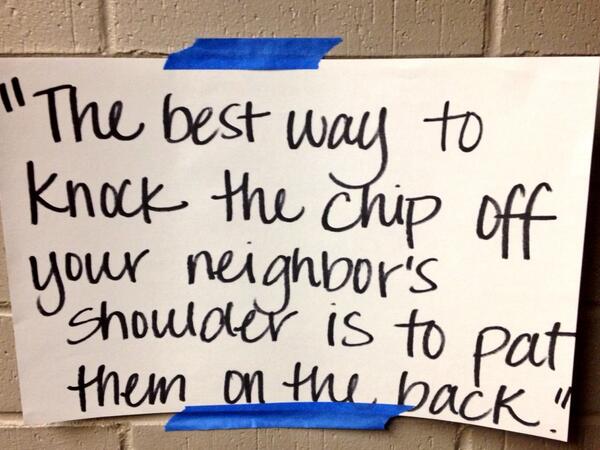 "The best way to
knock the chip off
your neighbor's
shoulder is to pat
them on the back."